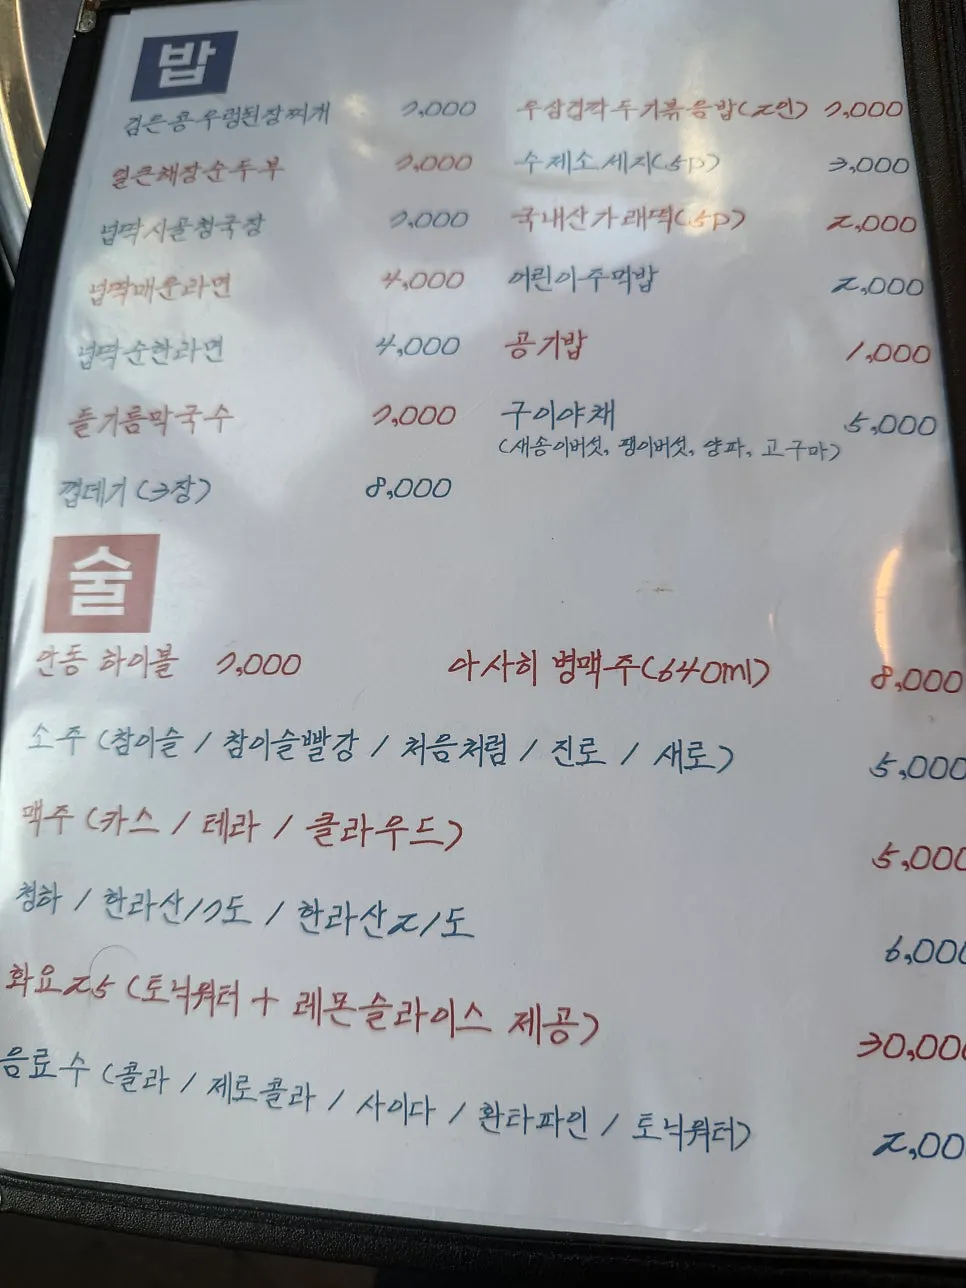 밥
검은콩우렁된장찌개 7,000
얼큰해장순두부 7,000
넙딱시골청국장 7,000
넙딱매운라면 4,000
넙딱순한라면 4,000
들기름막국수 7,000
껍데기(3장) 8,000
우삼겹깍두기볶음밥(2인) 7,000
수제소세지(5p) 3,000
국내산가래떡(5p) 2,000
어린이주먹밥 2,000
공기밥 1,000
구이야채 5,000
(새송이버섯, 팽이버섯, 양파, 고구마)
술
안동 하이볼 7,000
아사히 병맥주(640ml) 8,000
소주 (참이슬 / 참이슬빨강 / 처음처럼 / 진로 / 새로) 5,000
맥주 (카스 / 테라 / 클라우드) 5,000
청하 / 한라산17도 / 한라산21도 6,000
화요25 (토닉워터 + 레몬슬라이스 제공) 30,000
음료수 (콜라 / 제로콜라 / 사이다 / 환타파인 / 토닉워터) 2,00